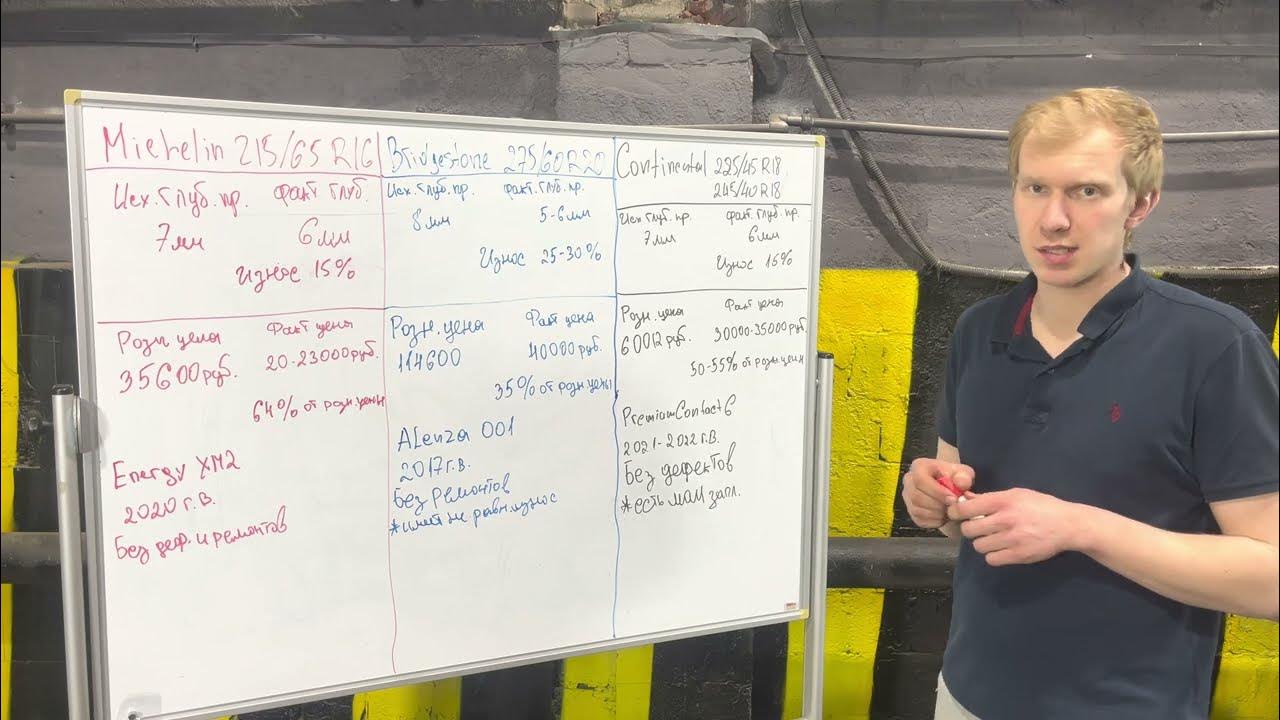 Michelin 215/65 R16
Исх. глуб. пр. Факт глуб.
7мм 6мм
Износ 15%
Розн цена Факт цены
35600 руб. 20-23000 руб.
64% от розн цены
Energy XM2
2020 г.в.
Без деф. и ремонтов
Bridgestone 275/60 R20
Исх. глуб. пр. Факт. глуб. пр.
8мм 5-6мм
Износ 25-30%
Розн. цена Факт цена
114600 40000 руб.
35% от розн цены
ALenza 001
2017 г.в.
Без ремонтов
*имеет не равн. износ
Continental 225/45 R18
245/40 R18
Исх. глуб. пр. факт. глуб. пр.
7мм 6мм
Износ 15%
Розн. цена Факт цены
60012 руб. 30000-35000 руб.
50-55% от розн. цены
PremiumContact 6
2021-2022 г.в.
Без дефектов
*есть мал запл.